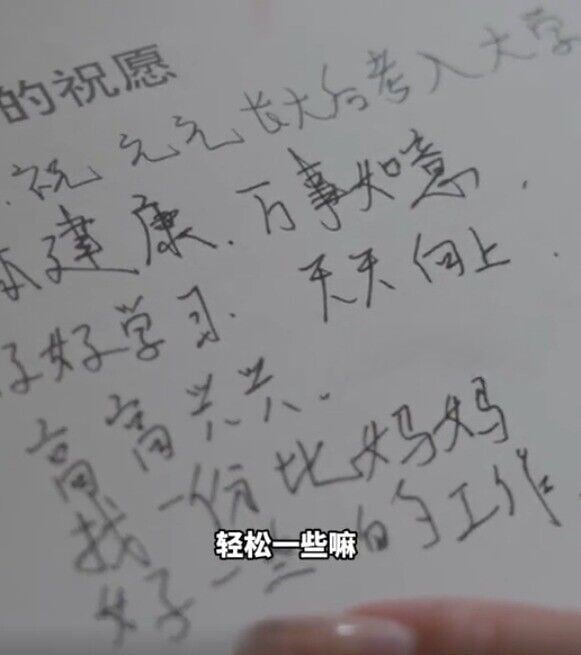 的祝愿
祝元元长大后考入大学
体建康.万事如意.
好好学习.天天向上.
高高兴兴.
找一份比妈妈
好一些的工作
轻松一些嘛